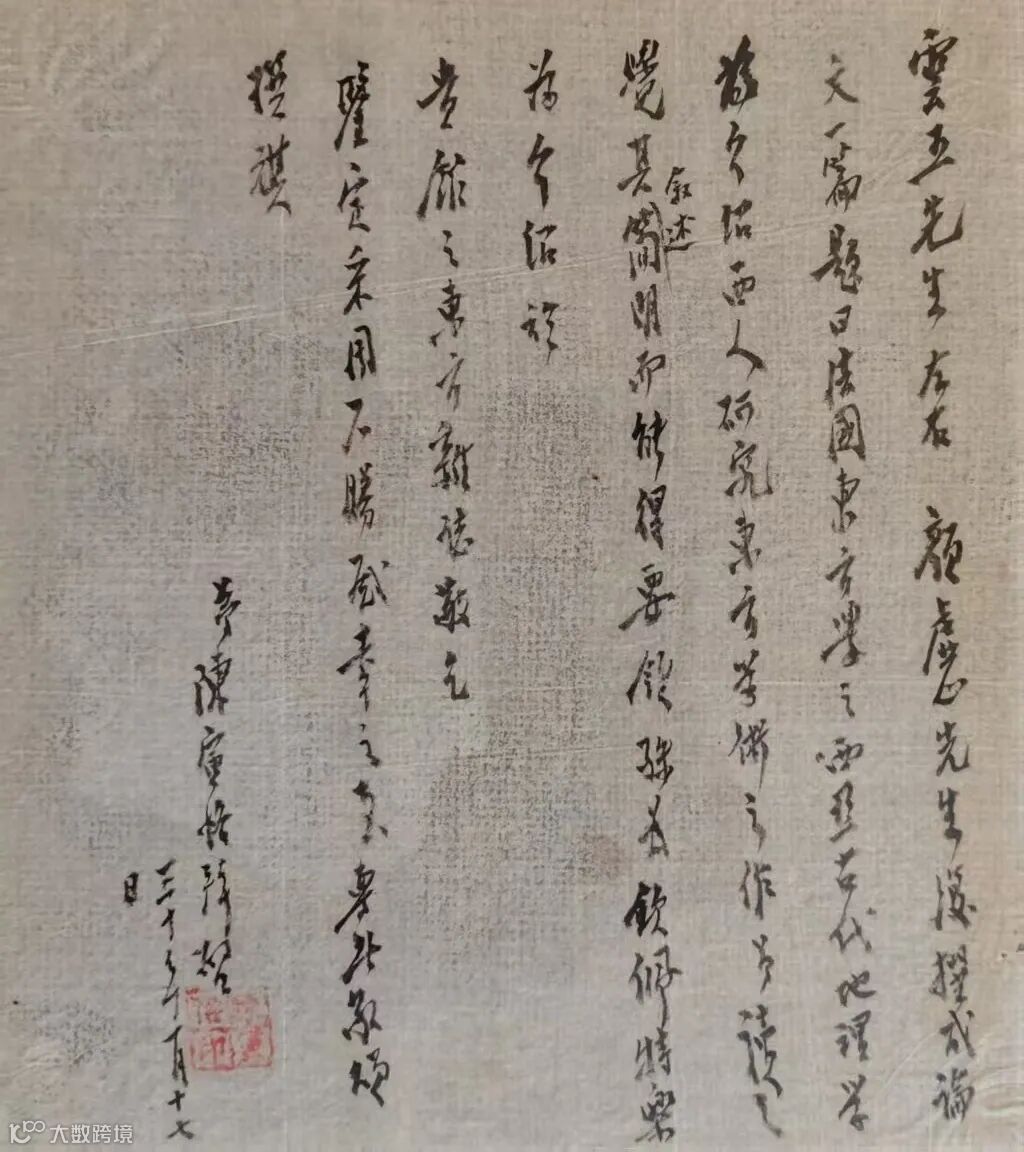 雲五先生左右 顏虛心先生後撰成論
文一篇題曰法國東方學之西亞古代地理學
為介紹西人研究東方學術之作弟讀之
覺其敘述簡明而能得要領殊為欽佩特樂
為介紹於
貴館之東方雜誌敬乞
鑒定采用不勝感幸之至專此敬頌
撰祺
弟陳寅恪拜啓
三十年十月十七
日
大数跨境